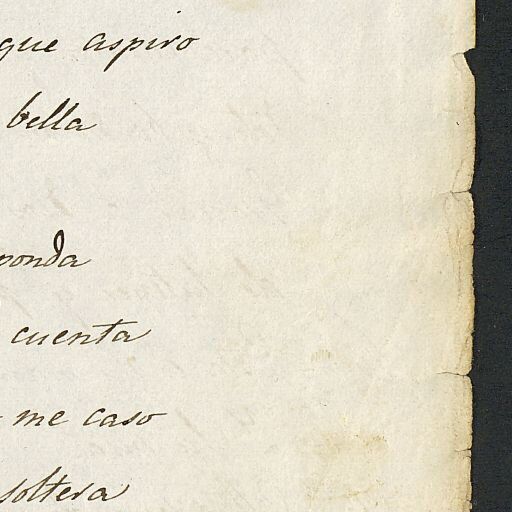 que aspiro
bella
ponda
cuenta
me caso
soltera